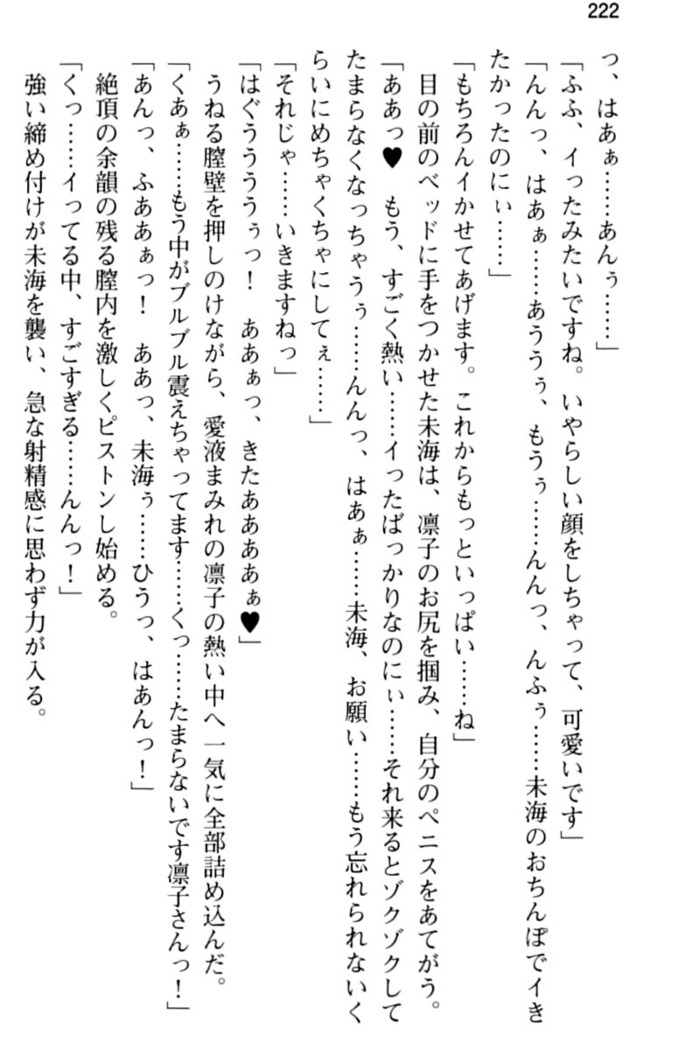 222
っ、はあぁ……あんぅ……」
「ふふ、イったみたいですね。いやらしい顔をしちゃって、可愛いです」
「んんっ、はあぁ……あううぅ、もうぅ……んんっ、んふぅ……未海のおちんぽでイき
たかったのにぃ……」
「もちろんイかせてあげます。これからもっといっぱい……ね」
目の前のベッドに手をつかせた未海は、凛子のお尻を掴み、自分のペニスをあてがう。
「ああっ♥　もう、すごく熱い……イったばっかりなのにぃ……それ来るとゾクゾクして
たまらなくなっちゃうぅ……んんっ、はあぁ……未海、お願い……もう忘れられないく
らいにめちゃくちゃにしてぇ……」
「それじゃ……いきますねっ」
「はぐううううぅっ！　ああぁっ、きたああああぁ♥」
うねる膣壁を押しのけながら、愛液まみれの凛子の熱い中へ一気に全部詰め込んだ。
「くあぁ……もう中がブルブル震えちゃってます……くっ……たまらないです凛子さんっ！」
「あんっ、ふああぁっ！　ああっ、未海ぅ……ひうっ、はあんっ！」
絶頂の余韻の残る膣内を激しくピストンし始める。
「くっ……イってる中、すごすぎる……んんっ！」
強い締め付けが未海を襲い、急な射精感に思わず力が入る。